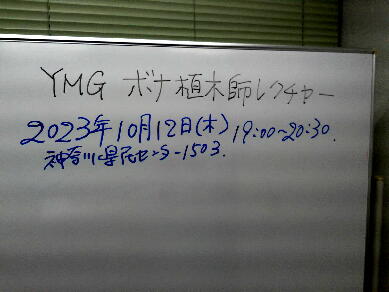 YMG ボナ植木師レクチャー
2023年10月12日(木) 19:00~20:30.
神奈川県民センター1503.